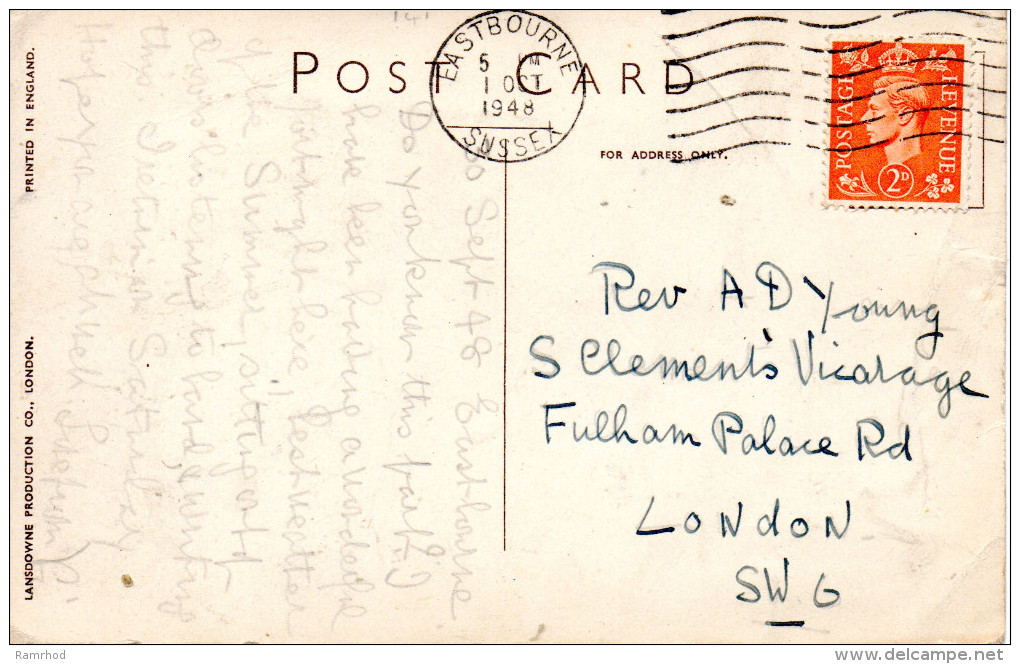 POST CARD
EASTBOURNE
5 M
1 OCT
1948
SUSSEX
POSTAGE REVENUE
2D
FOR ADDRESS ONLY.
PRINTED IN ENGLAND.
LANSDOWNE PRODUCTION CO., LONDON.
30 Sept 48 Eastbourne
Do you know this part? I
have been having a wonderful
fortnight here, best weather
of the Summer, sitting out
& listening to band, writing
this. I return Saturday
Hope you are all well
Rev A D Young
S Clement's Vicarage
Fulham Palace Rd
LONdON
SW 6
Ramrhod
delcampe.net